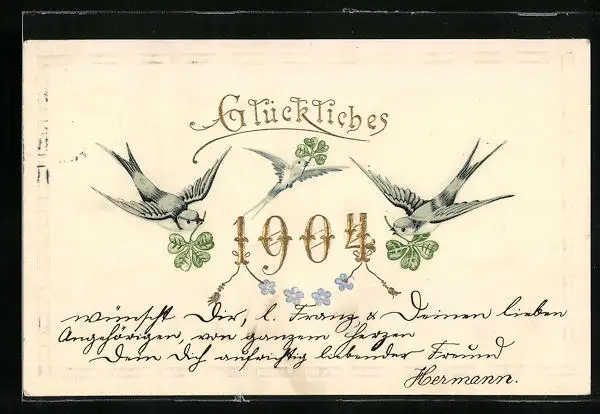 Glückliches
1904
wünscht Dir, l. Franz & Deinen lieben
Angehörigen, von ganzem Herzen
Dein Dich aufrichtig liebender Freund
Hermann.